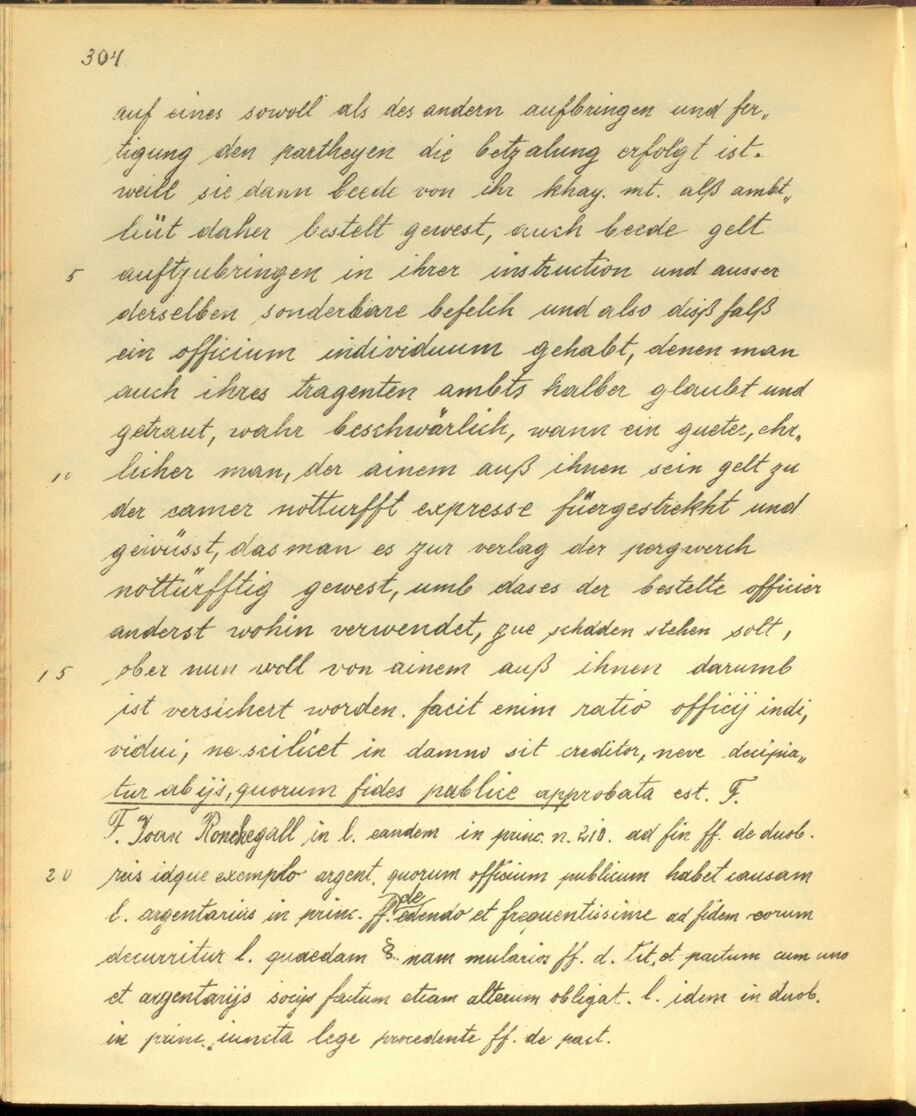 304
auf eines sowoll als des andern aufbringen und fer„
tigung den partheyen die betzalung erfolgt ist.
weill sie dann beede von ihr khay. mt. alß ambt„
leüt daher bestelt gewest, auch beede gelt
5 auftzubringen in ihrer instruction und ausser
derselben sonderbare befelch und also dißfalß
ein officium individuum gehabt, denen man
auch ihres tragenten ambts halber glaubt und
getraut, wahr beschwärlich, wann ein gueter, ehr„
10 licher man, der ainem auß ihnen sein gelt zu
der camer notturfft expresse füergestrekht und
gewüsst, das man es zur verlag der pergwerch
nottürfftig gewest, umb das es der bestelte officier
anderst wohin verwendet, zue schaden stehen solt,
15 ober nun woll von ainem auß ihnen darumb
ist versichert worden. facit enim ratio officij indi„
vidui, ne scilicet in damno sit creditor, neve decipia„
tur ab ijs, quorum fides publice approbata est. F.
F. Joan Ronchegall in l. eandem in princ. n. 210. ad fin ff. de duob.
20 reis idque exemplo argent. quorum officium publicum habet causam
l. argentarius in princ. ff. de edendo et frequentissime ad fidem eorum
decurritur l. quaedam §. nam mularios ff. d. tit. et pactum cum uno
et argentarijs socijs factum etiam alterum obligat. l. idem in duob.
in princ. iuncta lege procedente ff. de pact.